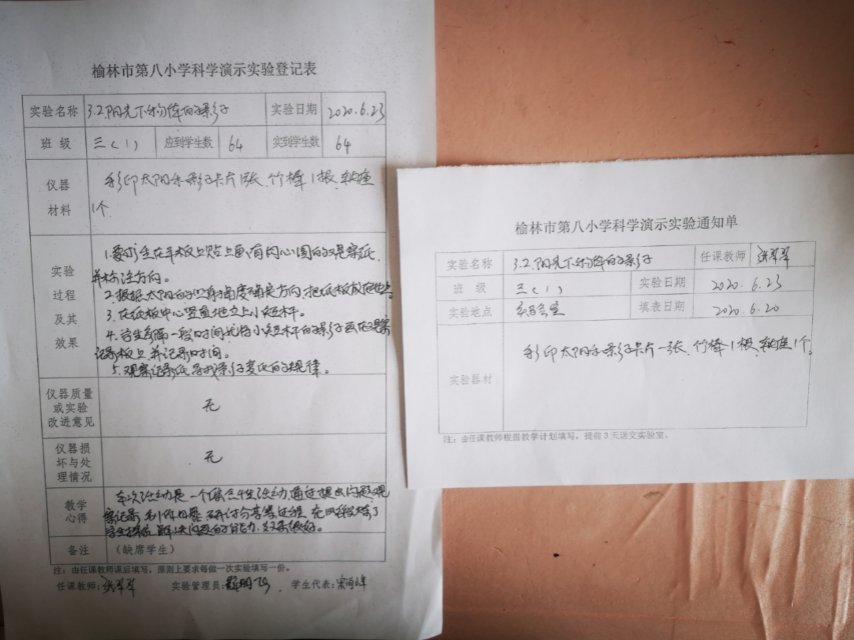 榆林市第八小学科学演示实验登记表
实验名称 3.2阳光下物体的影子 实验日期 2020.6.23
班 级 三(1) 应到学生数 64 实到学生数 64
仪器材料 彩印太阳和影子卡片1张、竹棒1根、
1个.
实验过程及其效果
1.要求学生在平板上贴上画有同心圆的观察纸
并标注方向。
2.根据太阳的照射角度确定方向,把纸板放在地上
3.在纸板中心竖直地立上小短杆。
4.学生每隔一段时间就将小短杆的影子画在观察
记录板上并记录时间。
5.观察记录纸寻找影子变化的规律。
仪器质量或实验改进意见 无
仪器损坏与处理情况 无
教学心得
本次活动是一个学生活动,通过提出问题、观
察记录、研讨分享等过程,充分锻炼了
学生解决问题的能力,效果很好。
备注 (缺席学生)
注:由任课教师课后填写,原则上要求每做一次实验填写一份。
任课教师: 实验管理员: 学生代表:
榆林市第八小学科学演示实验通知单
实验名称 3.2.阳光下物体的影子 任课教师
班 级 三(1) 实验日期 2020.6.23
实验地点 实验室 填表日期 2020.6.20
实验器材 彩印太阳和影子卡片一张、竹棒1根、 1个.
注:由任课教师根据教学计划填写,提前3天送交实验室。